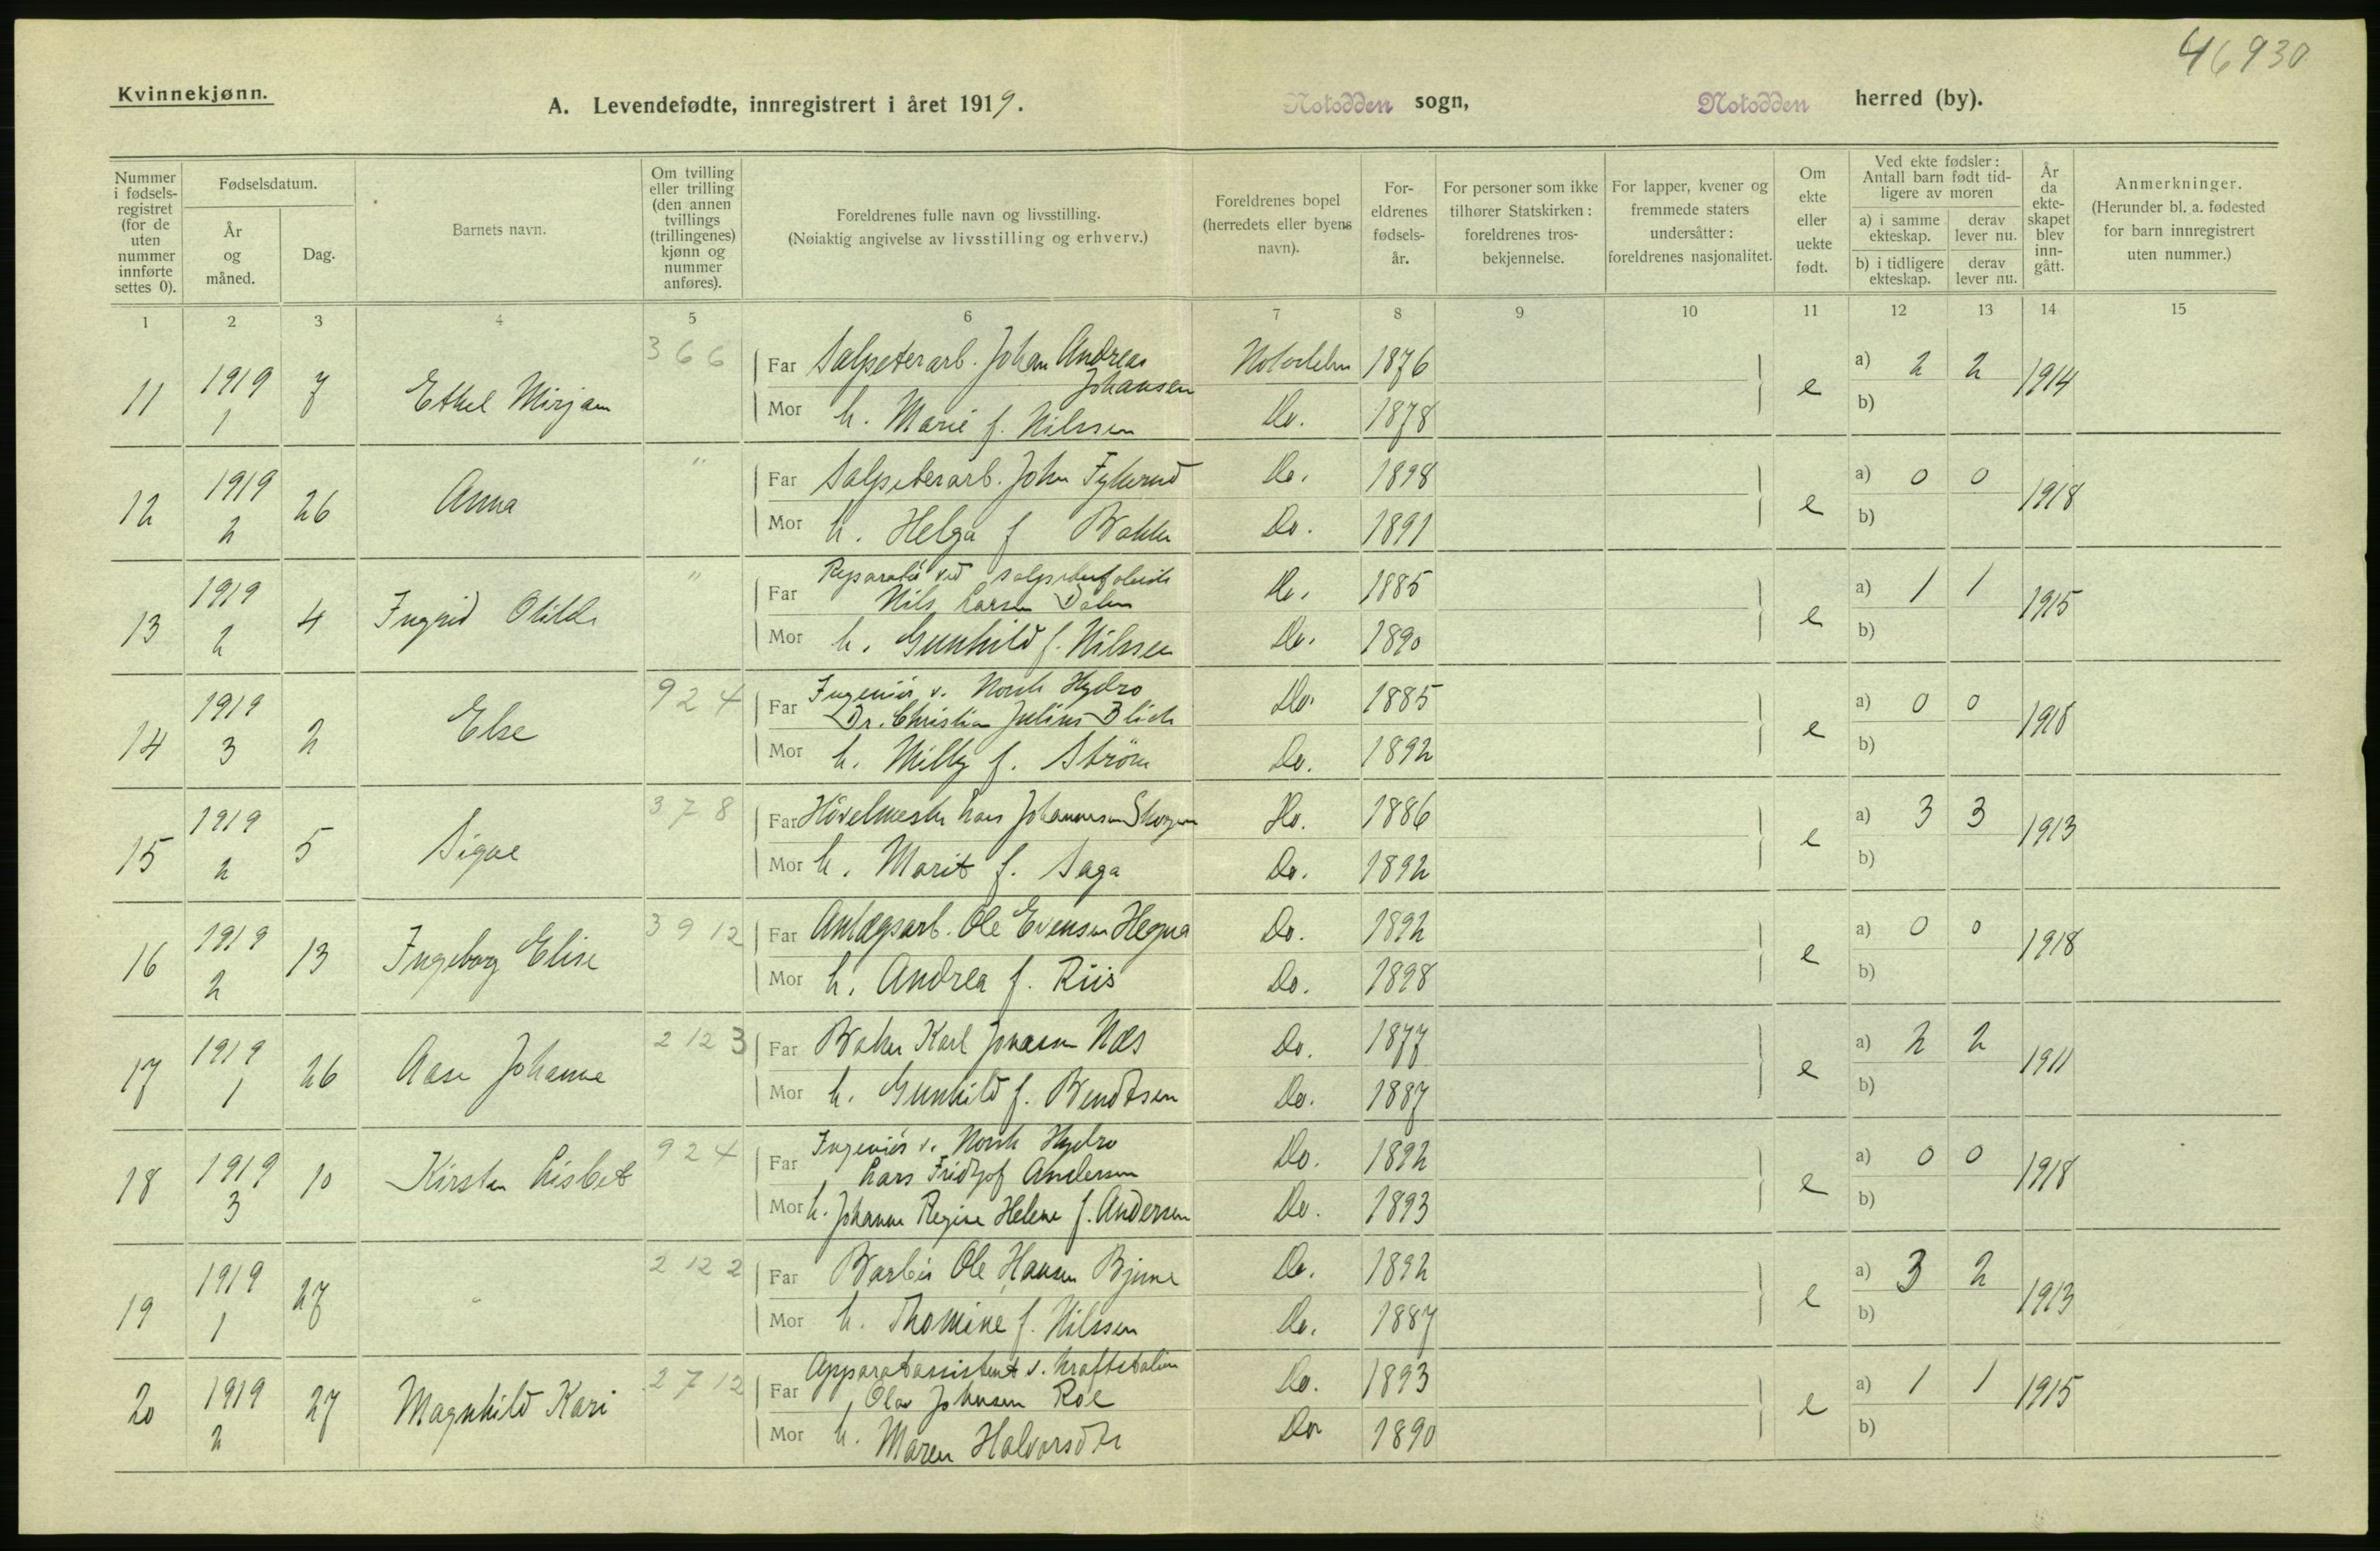 46930
Kvinnekjønn.
A. Levendefødte, innregistrert i året 1919. Notodden sogn, Notodden herred (by).
Nummer i fødsels-registret (for de uten nummer innførte settes 0). Fødselsdatum. År og måned. Dag. Barnets navn. Om tvilling eller trilling (den annen tvillings (trillingenes) kjønn og nummer anføres). Foreldrenes fulle navn og livsstilling. (Nøiaktig angivelse av livsstilling og erhverv.) Foreldrenes bopel (herredets eller byens navn). For-eldrenes fødsels-år. For personer som ikke tilhører Statskirken: foreldrenes tros-bekjennelse. For lapper, kvener og fremmede staters undersåtter: foreldrenes nasjonalitet. Om ekte eller uekte født. Ved ekte fødsler: Antall barn født tid-ligere av moren a) i samme ekteskap. derav lever nu. b) i tidligere ekteskap. derav lever nu. År da ekte-skapet blev inn-gått. Anmerkninger. (Herunder bl. a. fødested for barn innregistrert uten nummer.)
1 2 3 4 5 6 7 8 9 10 11 12 13 14 15
366 Far Salpeterarb. Johan Andreas Johansen Notodden 1876 a) 2 2
11 1919 1 7 Ethel Mirjam e 1914
Mor h. Marie f. Nilssen Do. 1878 b)
" Far Salpeterarb. John Do. 1898 a) 0 0
12 1919 2 26 Anna e 1918
Mor h. Helga f Do. 1891 b)
" Far Reparatør ved salpeterfabrik
Nils Larsen Dalen Do. 1885 a) 1 1
13 1919 2 4 Ingrid e 1915
Mor h. Gunhild f. Nilssen Do. 1890 b)
924 Far Ingeniør v. Norsk Hydro
Dr. Christian Julius Blich Do. 1885 a) 0 0
14 1919 3 2 Else e 1918
Mor h. Milly f. Strøm Do. 1892 b)
378 Far Høvelmester Lars Johannesen Skogen Do. 1886 a) 3 3
15 1919 2 5 Signe e 1913
Mor h. Marit f. Saga Do. 1892 b)
3912 Far Anlægsarb. Ole Evensen Hegna Do. 1892 a) 0 0
16 1919 2 13 Ingeborg Elise e 1918
Mor h. Andrea f. Riis Do. 1898 b)
2123 Far Baker Karl Jonasen Næs Do. 1877 a) 2 2
17 1919 1 26 Aase Johanne e 1911
Mor h. Gunhild f. Bendtsen Do. 1887 b)
924 Far Ingeniør v. Norsk Hydro
Lars Fridtjof Andersen Do. 1892 a) 0 0
18 1919 3 10 Kirsten Lisbet e 1918
Mor h. Johanne Regine Helene f. Andersen Do. 1893 b)
2122 Far Barbér Ole Hansen Do. 1892 a) 3 2
19 1919 1 27 e 1913
Mor h. Thomine f. Nilssen Do. 1887 b)
2712 Far Apparatassistent v. kraftstation
Olav Johnsen Roe Do. 1893 a) 1 1
20 1919 2 27 Magnhild Kari e 1915
Mor h. Maren Halvorsdtr Do 1890 b)